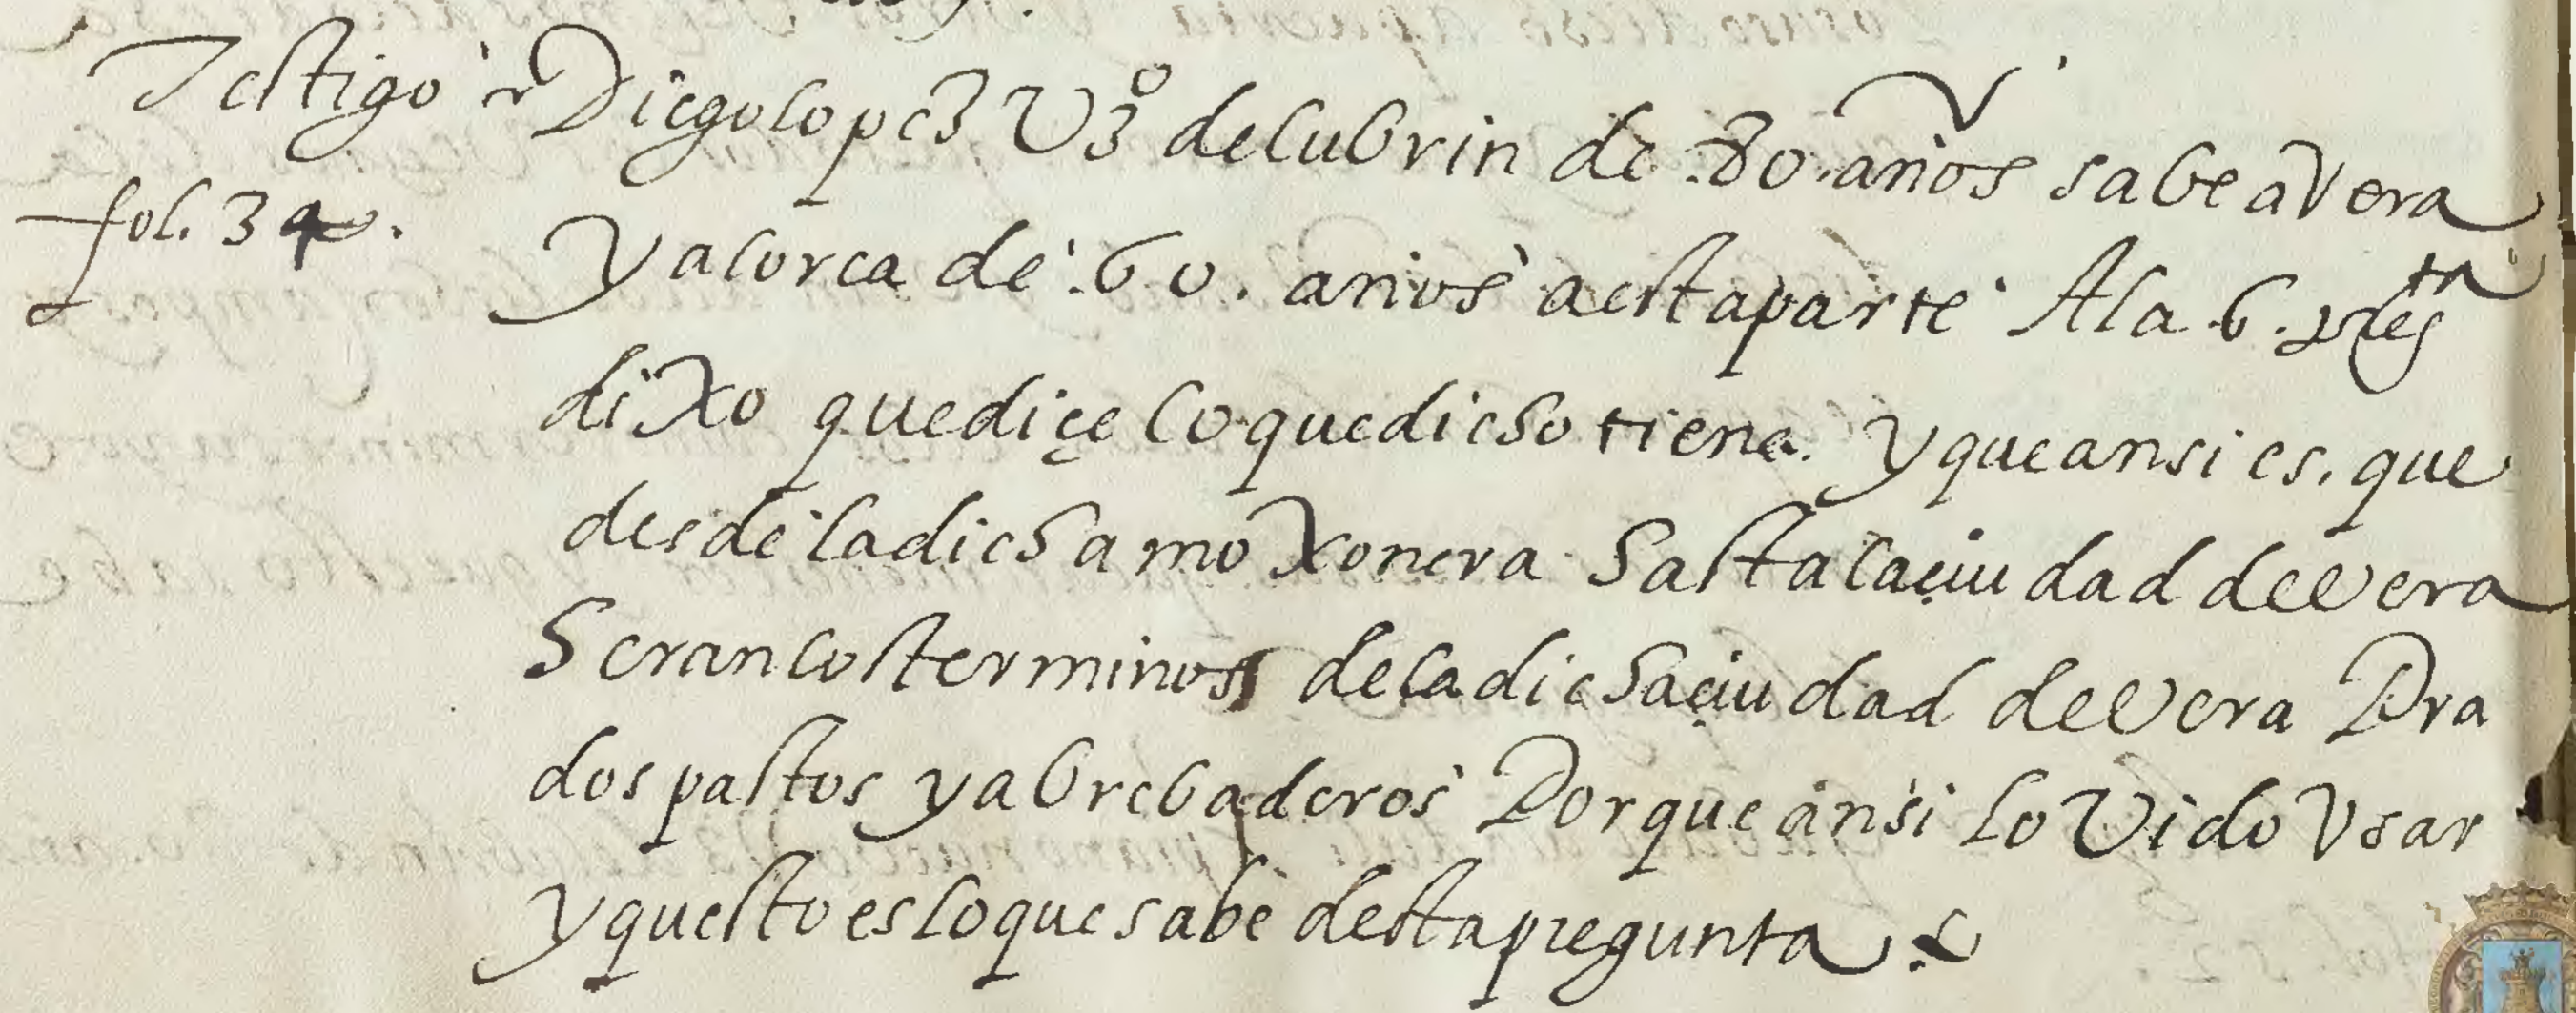 Testigo Diego lopez Vzº de lubrin de 80. años sabe a Vera
fol. 34. y a lorca de .60. años a esta parte A la .6. pregta
dixo que diçe lo que dicho tiene. y que ansi es. que
desde la dicha moxonera hasta la çiudad de vera
heran los terminos de la dicha çiudad de vera Pra
dos pastos y abrebaderos Por que ansi lo vido Vsar
y questo es lo que sabe desta pregunta